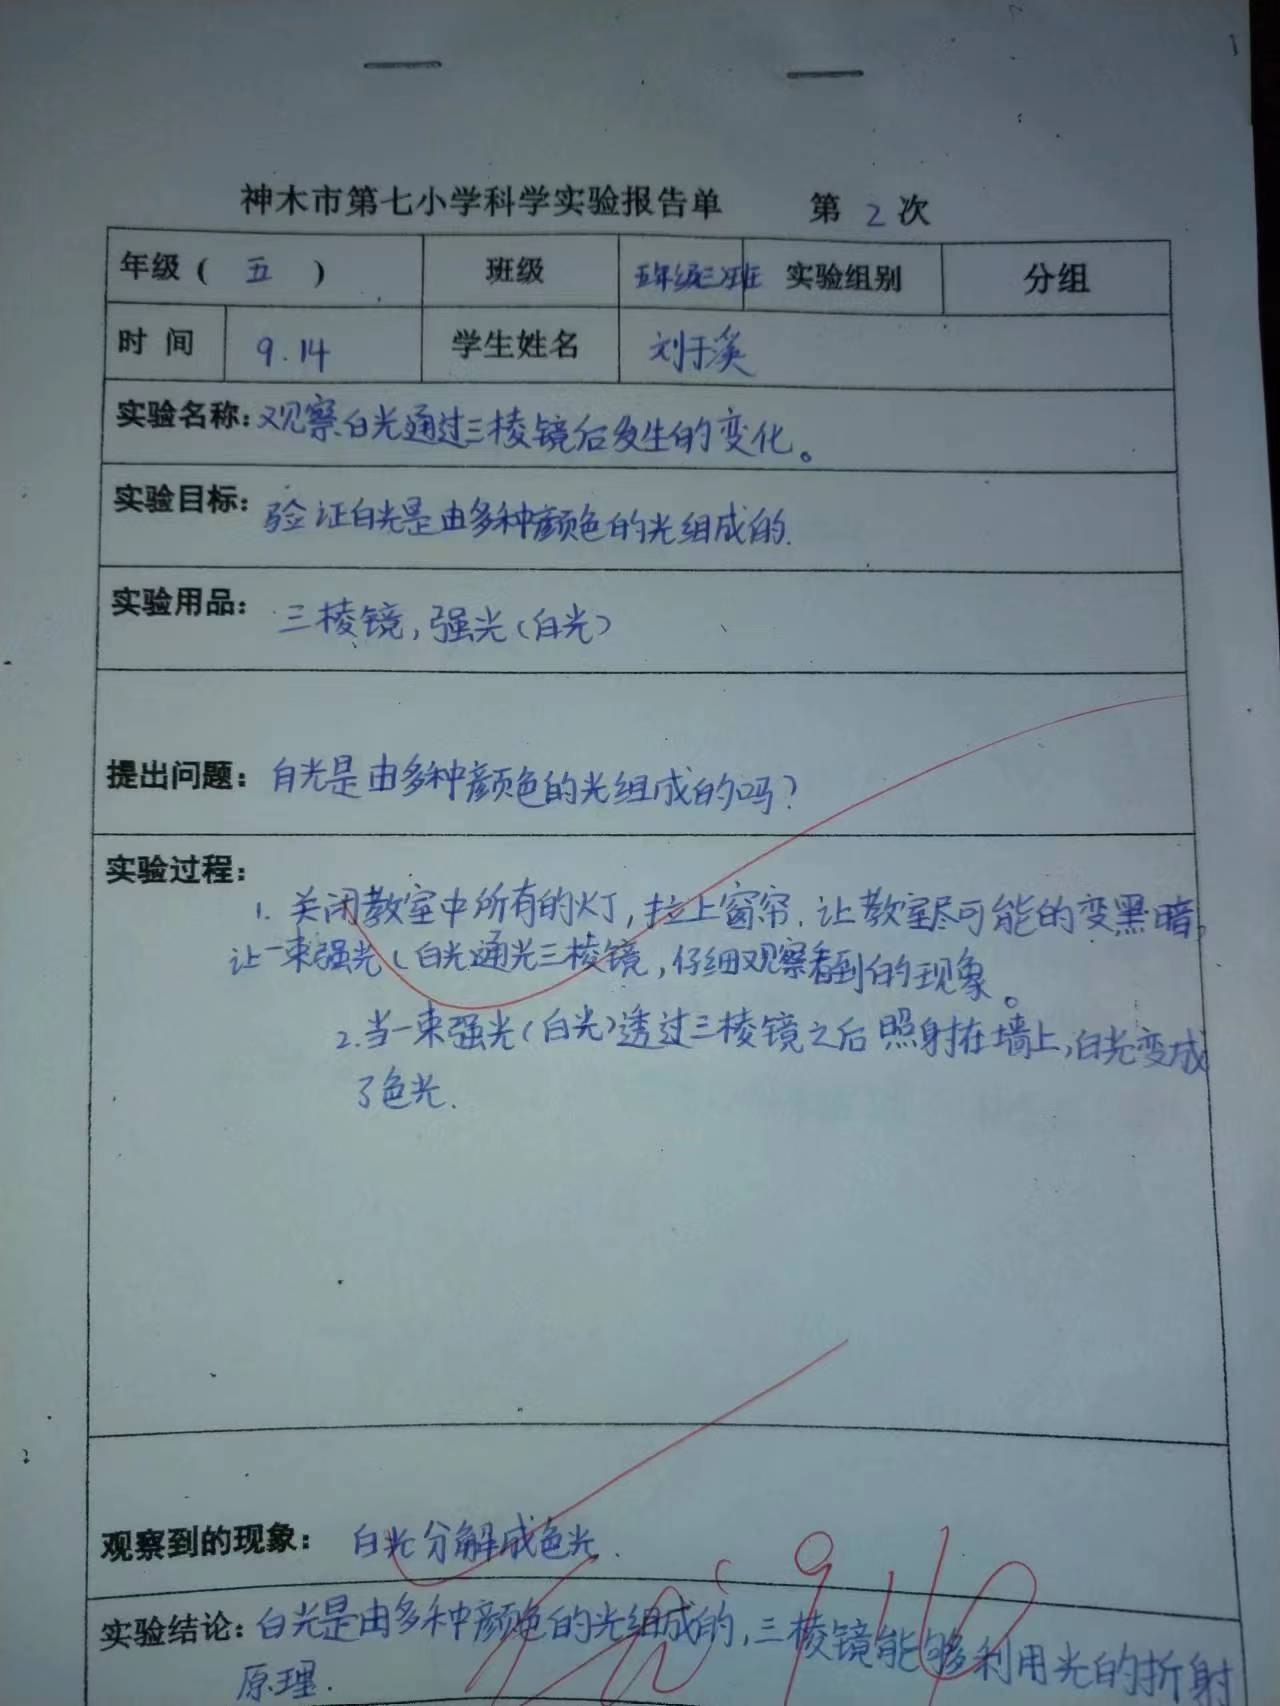 神木市第七小学科学实验报告单 第 2 次
年级（ 五 ） 班级 五年级三班 实验组别 分组
时 间 9.14 学生姓名 刘于溪
实验名称：观察白光通过三棱镜后发生的变化。
实验目标：验证白光是由多种颜色的光组成的.
实验用品：三棱镜，强光（白光）
提出问题：白光是由多种颜色的光组成的吗？
实验过程：
1. 关闭教室中所有的灯，拉上窗帘，让教室尽可能的变黑暗，
让一束强光（白光通光三棱镜，仔细观察看到的现象。
2.当一束强光（白光）透过三棱镜之后照射在墙上，白光变成
了色光.
观察到的现象：白光分解成色光.
实验结论：白光是由多种颜色的光组成的，三棱镜能够利用光的折射
原理.